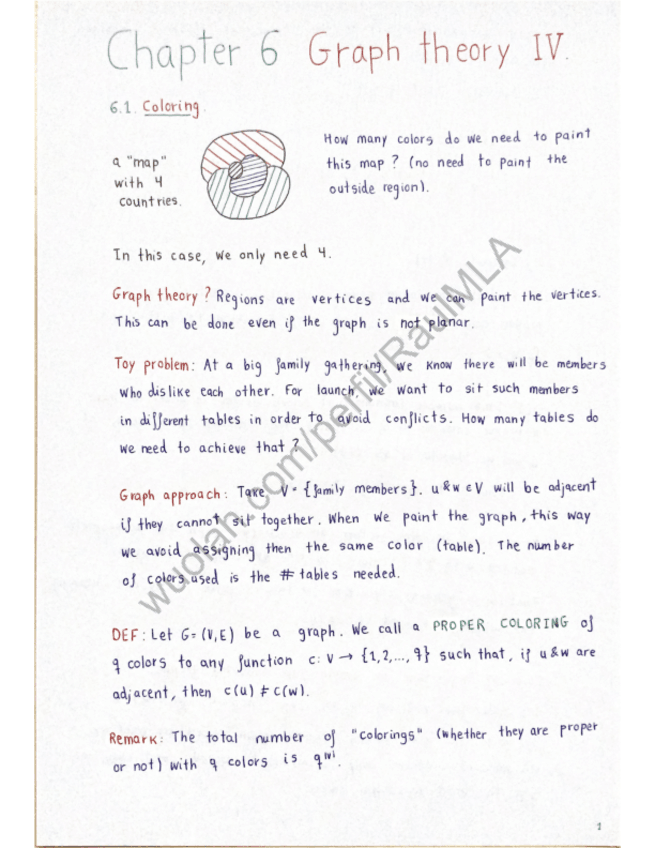 Chapter 6 Graph theory IV.
6.1. Coloring.
a "map"
with 4
countries.
How many colors do we need to paint
this map? (no need to paint the
outside region).
In this case, we only need 4.
Graph theory? Regions are vertices and we can paint the vertices.
This can be done even if the graph is not planar.
Toy problem: At a big family gathering, we know there will be members
who dislike each other. For launch, we want to sit such members
in different tables in order to avoid conflicts. How many tables do
we need to achieve that?
Graph approach: Take V = {family members}. u & w ∈ V will be adjacent
if they cannot sit together. When we paint the graph, this way
we avoid assigning then the same color (table). The number
of colors used is the # tables needed.
DEF: Let G = (V, E) be a graph. We call a PROPER COLORING of
q colors to any function c: V → {1,2,..., q} such that, if u & w are
adjacent, then c(u) ≠ c(w).
Remark: The total number of "colorings" (whether they are proper
or not) with q colors is q^|V|.
wuolah.com/perfil/RaulMLA
1